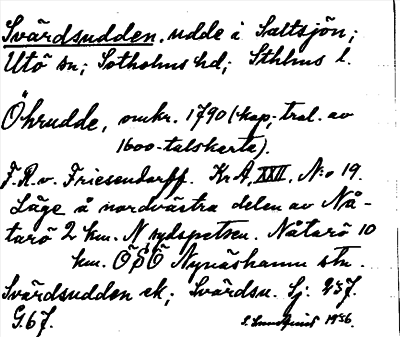 Svärdsudden. udde i Saltsjön;
Utö sn; Sotholms hd; Sthlms l.
Öhrudde, omkr. 1790 (kop. trol. av
1600-talskarta).
F.R.v. Friesendorff. KrA, XXII, N:o 19.
Läge å nordvästra delen av Nå-
tarö 2 km. N sydspetsen. Nåtarö 10
km. ÖSÖ Nynäshamn stn.
Svärdsudden ek; Svärdsu. Sj. 257.
G.67. 1936.